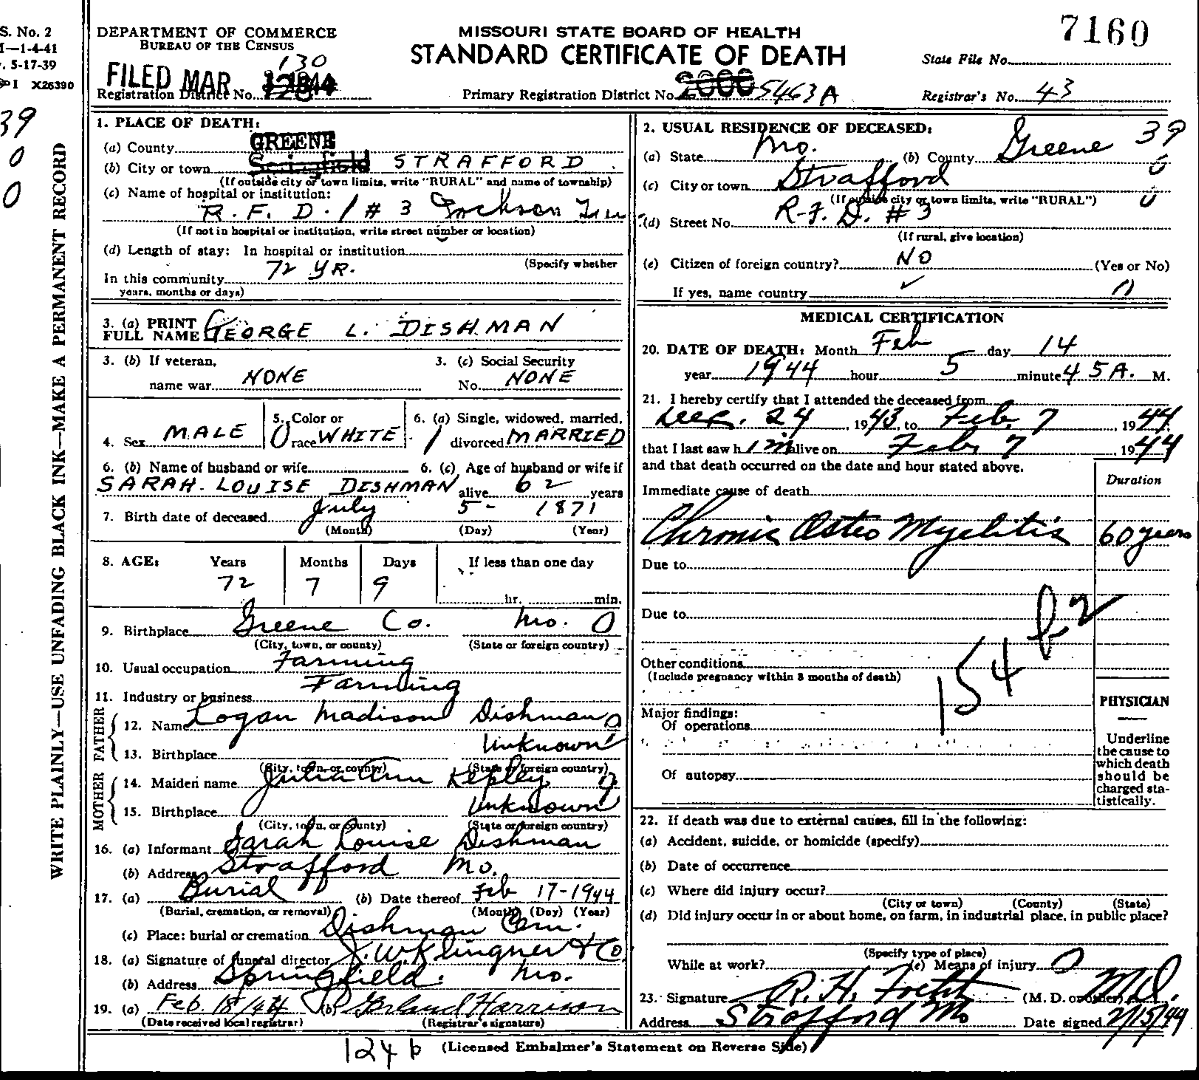 S. No. 2
M—1-4-41
v. 5-17-39
I X26390
39
0
0
WRITE PLAINLY—USE UNFADING BLACK INK—MAKE A PERMANENT RECORD
DEPARTMENT OF COMMERCE
BUREAU OF THE CENSUS
MISSOURI STATE BOARD OF HEALTH
STANDARD CERTIFICATE OF DEATH
7160
State File No.
FILED MAR
130
Registration District No.
Primary Registration District No. 5463A
Registrar's No. 43
1. PLACE OF DEATH:
(a) County GREENE
(b) City or town Springfield STRAFFORD
(If outside city or town limits, write "RURAL" and name of township)
(c) Name of hospital or institution:
R. F. D. # 3 Jackson
(If not in hospital or institution, write street number or location)
(d) Length of stay: In hospital or institution
(Specify whether
In this community 72 YR.
years, months or days)
3. (a) PRINT
FULL NAME GEORGE L. DISHMAN
3. (b) If veteran,
name war NONE
3. (c) Social Security
No. NONE
4. Sex MALE
5. Color or
race WHITE
6. (a) Single, widowed, married,
divorced MARRIED
6. (b) Name of husband or wife
SARAH LOUISE DISHMAN
6. (c) Age of husband or wife if
alive 62 years
7. Birth date of deceased July 5- 1871
(Month) (Day) (Year)
8. AGE: Years Months Days If less than one day
72 7 9
hr. min.
9. Birthplace Greene Co. Mo. 0
(City, town, or county) (State or foreign country)
10. Usual occupation Farming
11. Industry or business Farming
FATHER
12. Name Logan Madison Dishman 0
13. Birthplace Unknown
(City, town, or county) (State or foreign country)
MOTHER
14. Maiden name Julia Ann Kepley
15. Birthplace Unknown
(City, town, or county) (State or foreign country)
16. (a) Informant Sarah Louise Dishman
(b) Address Strafford Mo.
17. (a) Burial (b) Date thereof Feb 17-1944
(Burial, cremation, or removal) (Month) (Day) (Year)
(c) Place: burial or cremation Dishman Cem.
18. (a) Signature of funeral director J. W. Klingner & Co
(b) Address Springfield. Mo.
19. (a) Feb. 18/44 (b) Garland Harrison
(Date received local registrar) (Registrar's signature)
124b
(Licensed Embalmer's Statement on Reverse Side)
2. USUAL RESIDENCE OF DECEASED:
39
(a) State Mo. (b) County Greene
0
(c) City or town Strafford
(If outside city or town limits, write "RURAL")
0
(d) Street No. R.F.D. #3
(If rural, give location)
(e) Citizen of foreign country? NO (Yes or No)
If yes, name country 0
MEDICAL CERTIFICATION
20. DATE OF DEATH: Month Feb day 14
year 1944 hour 5 minute 45 A. M.
21. I hereby certify that I attended the deceased from
Dec. 24, 1943, to Feb. 7 1944
that I last saw him alive on Feb 7 1944
and that death occurred on the date and hour stated above.
Duration
Immediate cause of death
Chronic Osteo Myelitis 60 years
Due to
Due to
154 b2
Other conditions
(Include pregnancy within 3 months of death)
Major findings:
Of operations
Of autopsy
PHYSICIAN
Underline
the cause to
which death
should be
charged sta-
tistically.
22. If death was due to external causes, fill in the following:
(a) Accident, suicide, or homicide (specify)
(b) Date of occurrence
(c) Where did injury occur?
(City or town) (County) (State)
(d) Did injury occur in or about home, on farm, in industrial place, in public place?
(Specify type of place)
While at work? (e) Means of injury 0
23. Signature R. H. (M. D. or other) M.D.
Address Strafford Mo Date signed 2/15/44